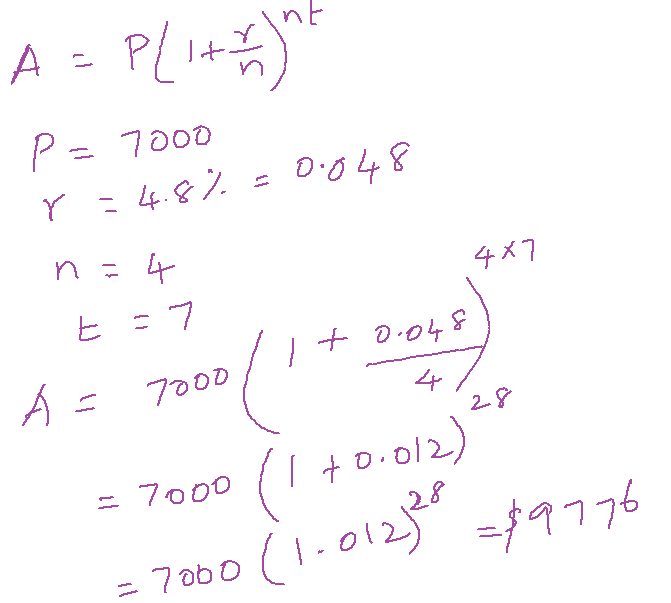 A = P(1+r/n)^nt
P = 7000
r = 4.8% = 0.048
n = 4
t = 7
A = 7000 (1 + 0.048/4)^4×7
= 7000 (1 + 0.012)^28
= 7000 (1.012)^28 = $9776